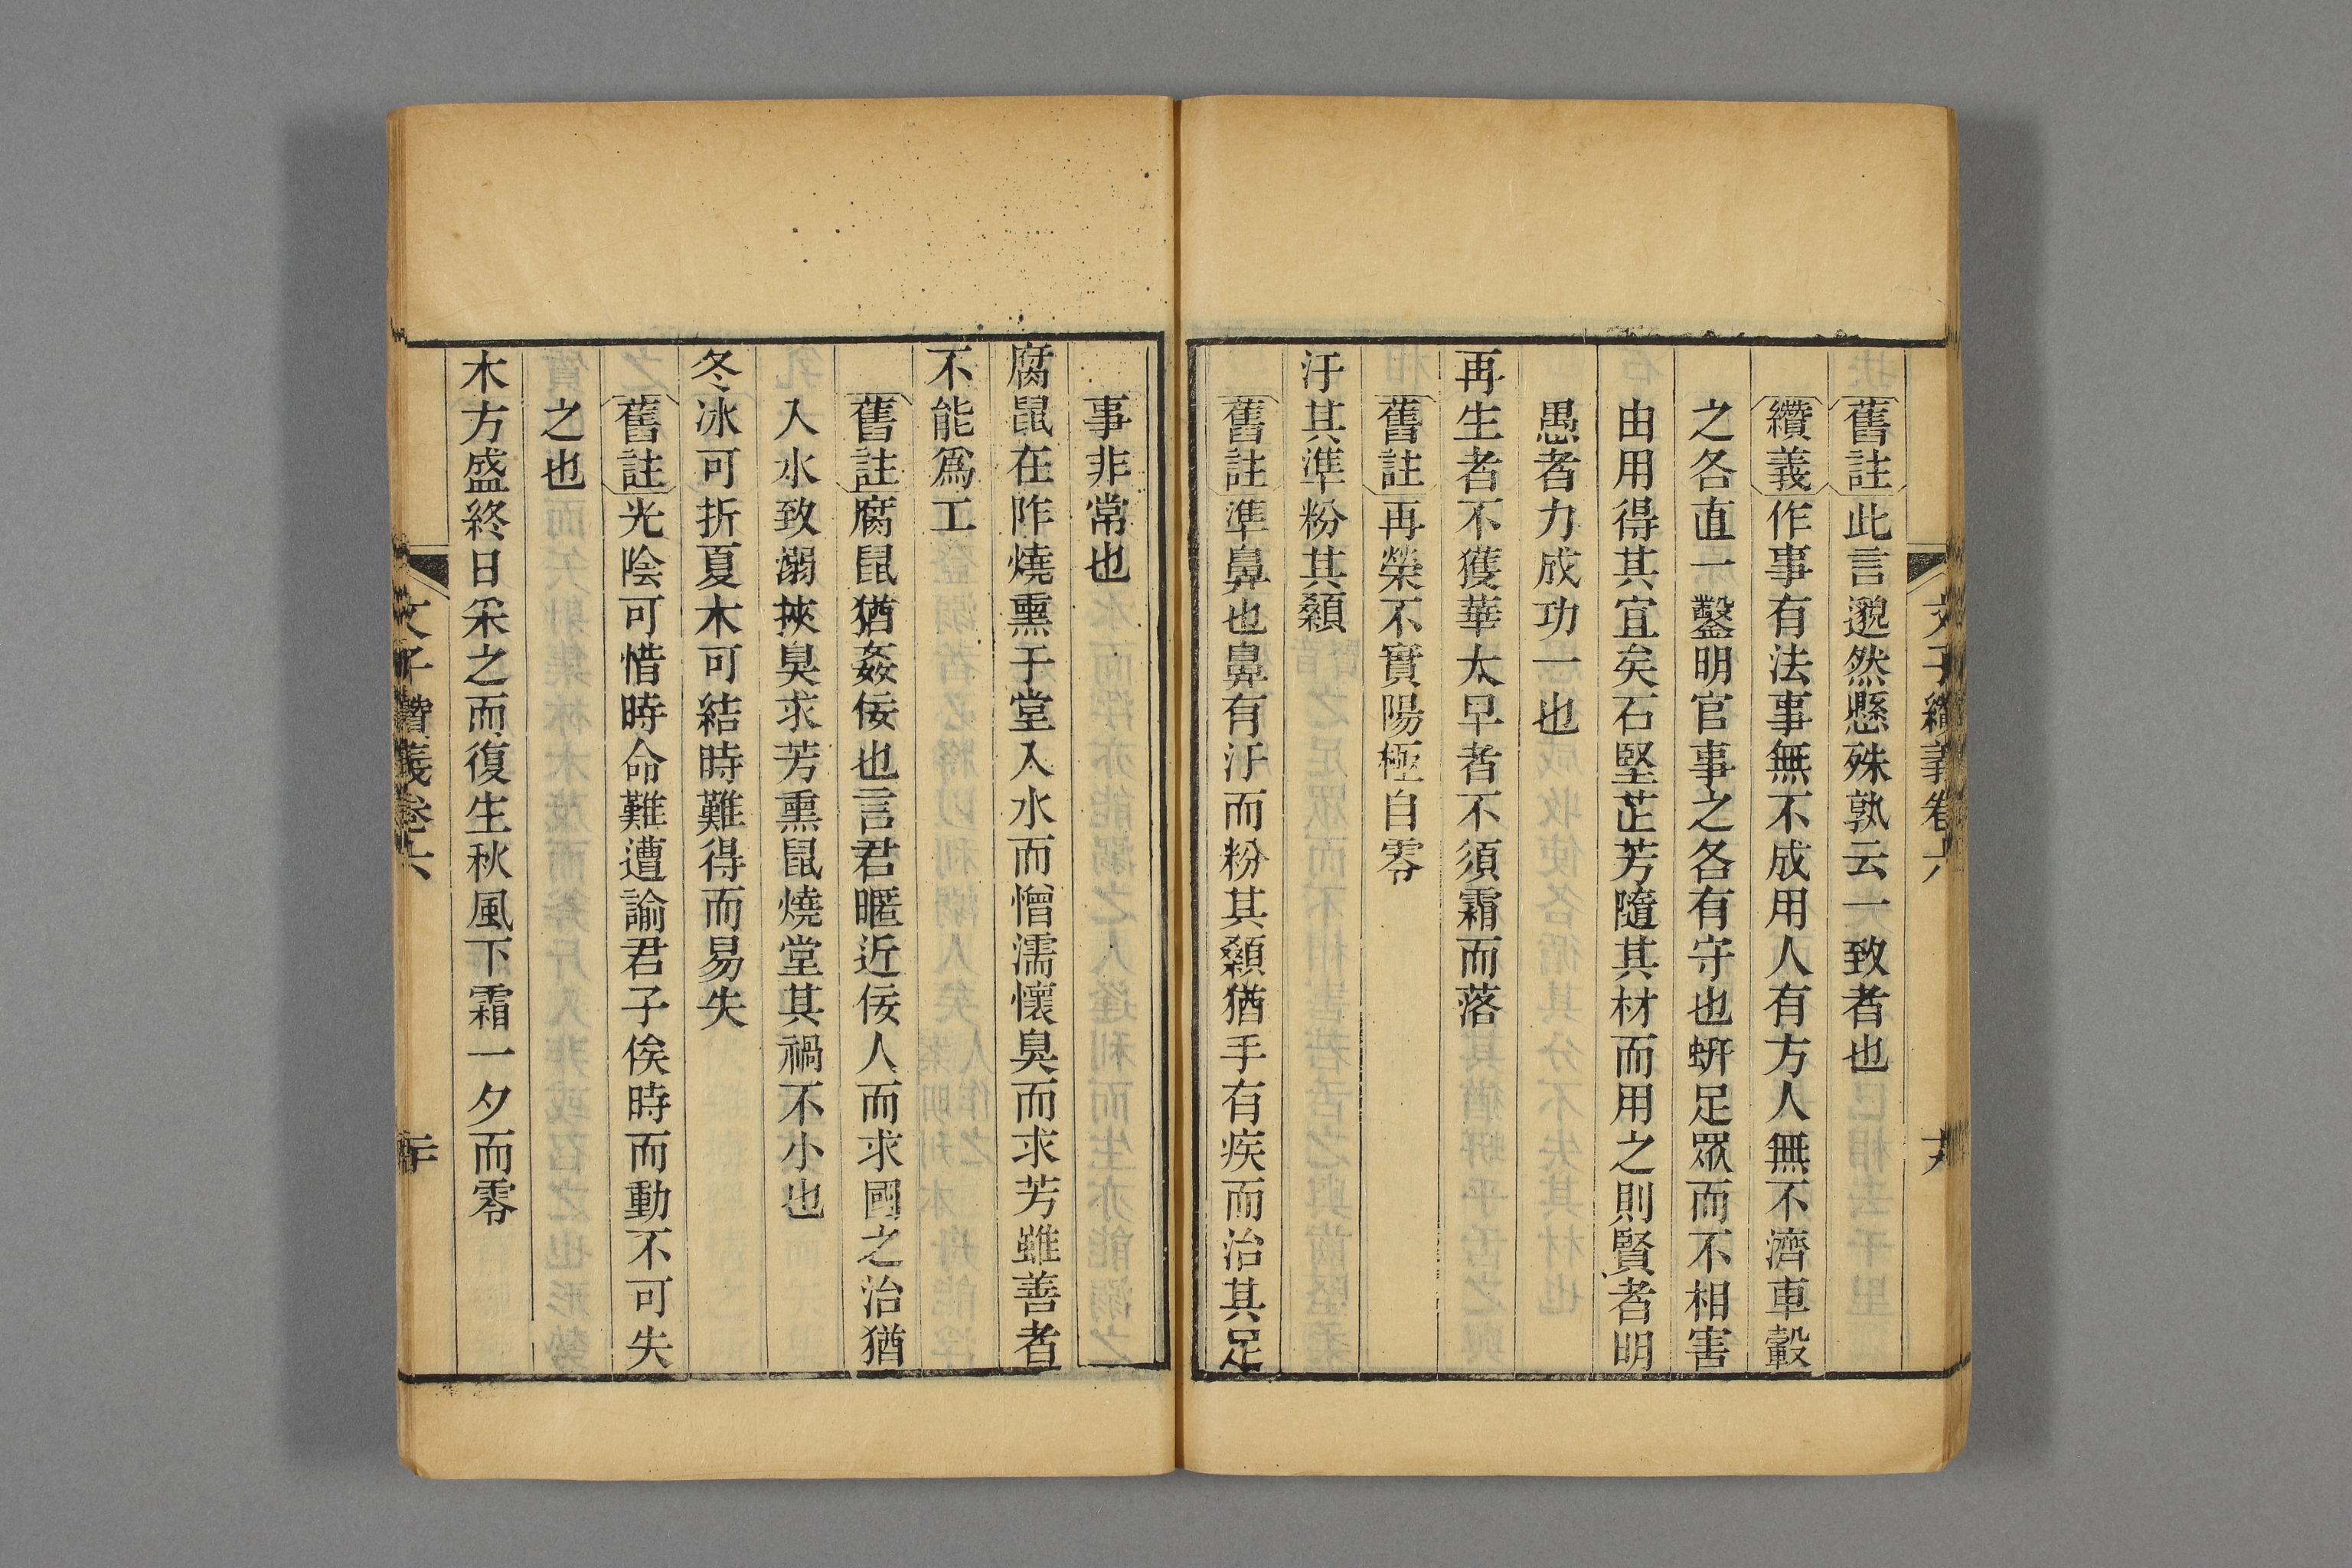 文子纘義卷六
舊註此言邈然懸殊孰云一致者也
纘義作事有法事無不成用人有方人無不濟車轂
之各直一鑿明官事之各有守也蚈足眾而不相害
由用得其宜矣石堅芷芳隨其材而用之則賢者明
愚者力成功一也
再生者不獲華太早者不須霜而落
舊註再榮不實陽極自零
汙其準粉其顙
舊註準鼻也鼻有汙而粉其顙猶手有疾而治其足
事非常也
腐鼠在阼燒熏于堂入水而憎濡懷臭而求芳雖善者
不能為工
舊註腐鼠猶姦佞也言君暱近佞人而求國之治猶
入水致溺挾臭求芳熏鼠燒堂其禍不小也
冬冰可折夏木可結時難得而易失
舊註光陰可惜時命難遭諭君子俟時而動不可失
之也
木方盛終日采之而復生秋風下霜一夕而零
文子纘義卷六